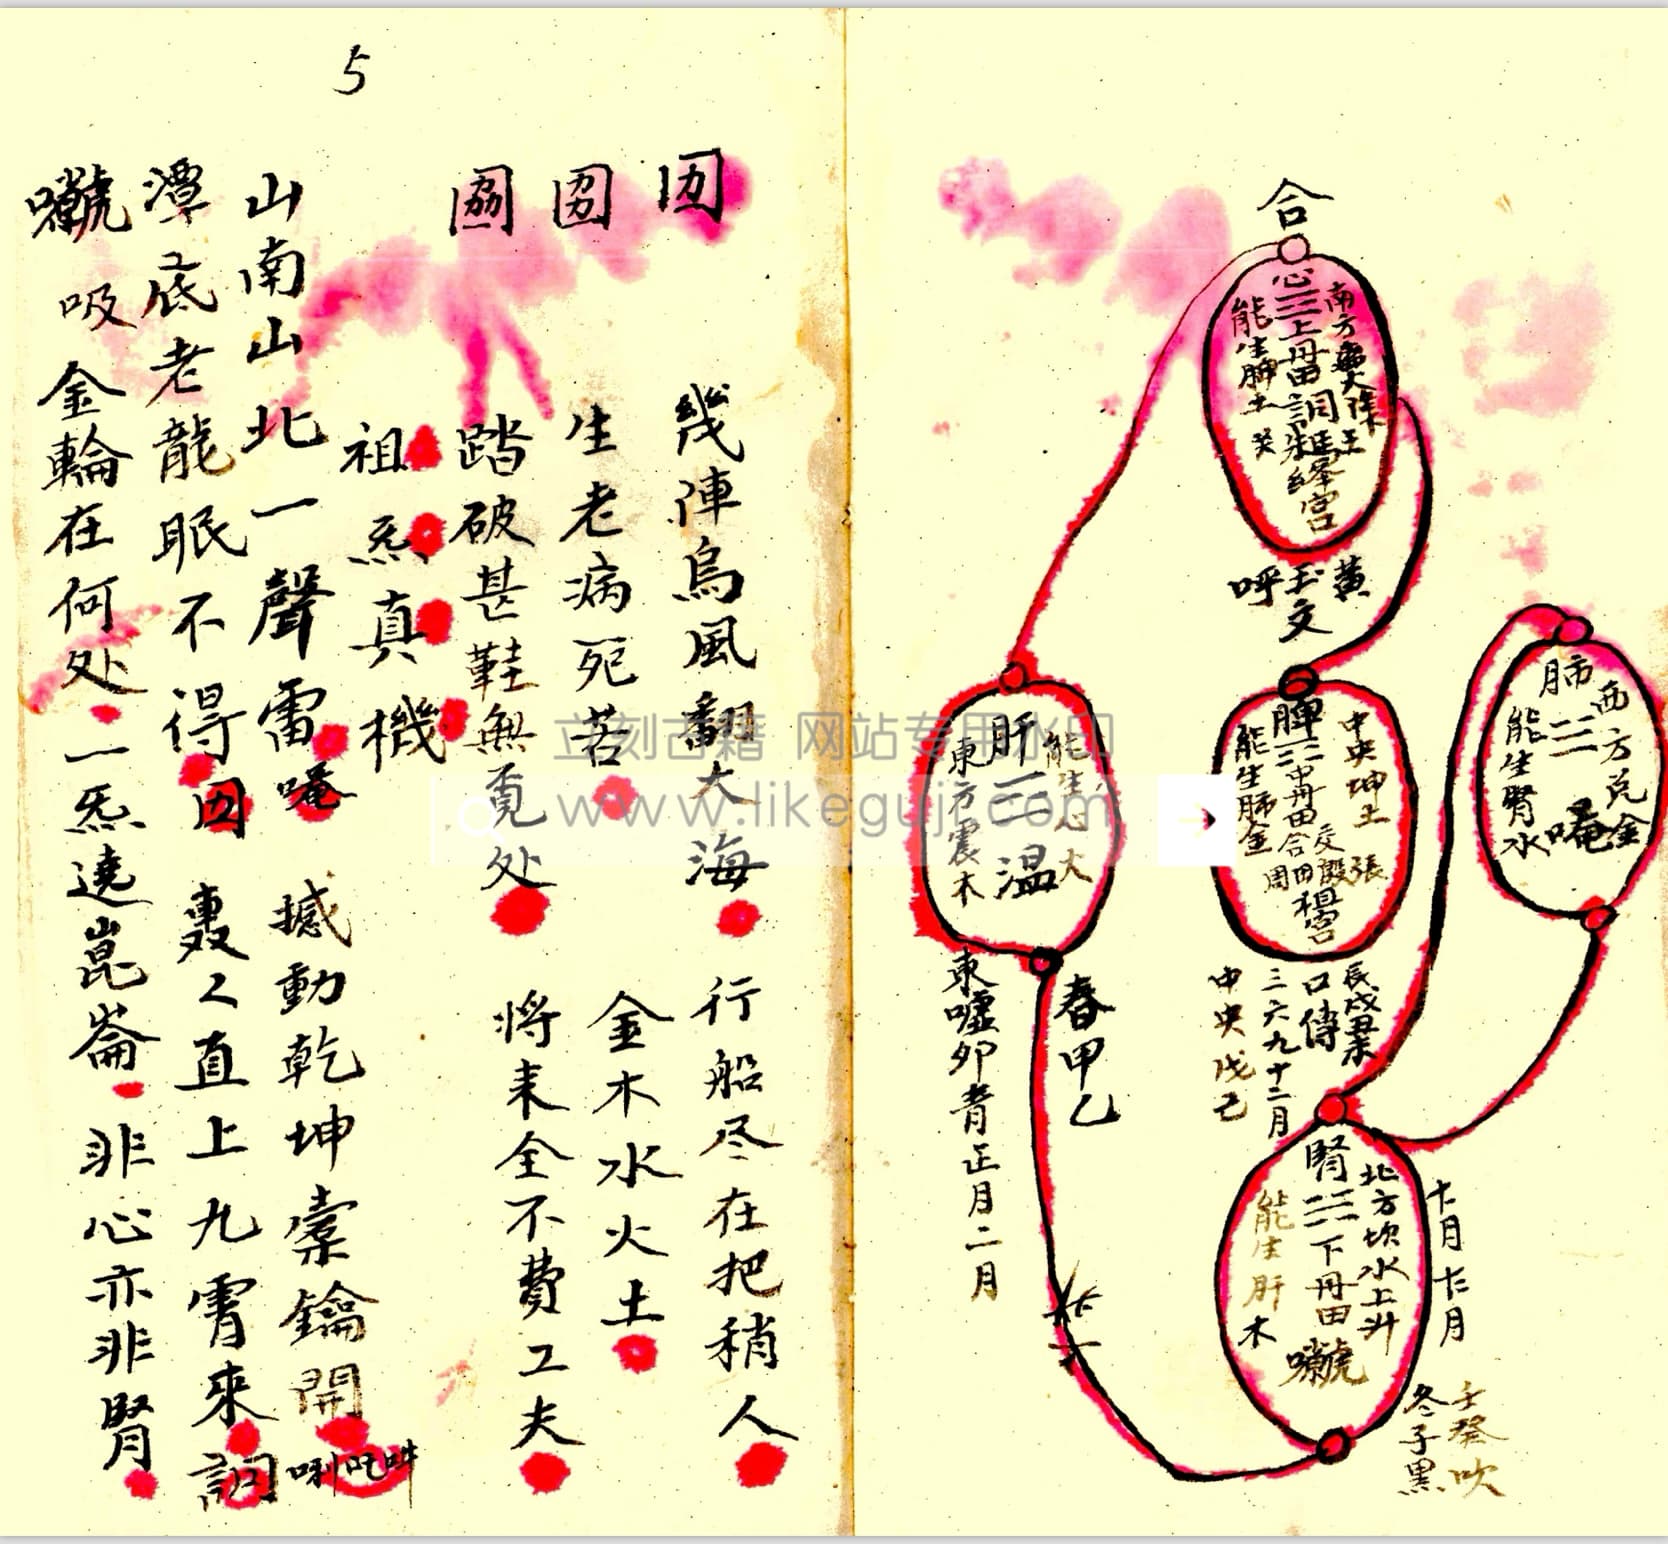 合
南方
心
三
上丹田
能生脾土
絳宮
黃
玉
文
呼
西方兌金
肺
三
唵
能生腎水
中央坤土
脾
三
中丹田
能生肺金
祖宮
能生心火
肝
三
温
東方震木
辰戌丑未
口傳
三六九十二月
中央戊己
春甲乙
東噓卯青正月二月
北方坎水上升
腎
三
下丹田
能生肝木
十月
壬癸吹
冬子黑
5
幾陣烏風翻大海 行船尽在把稍人
生老病死苦 金木水火土
踏破甚鞋無覓处 将来全不費工夫
祖炁真機
山南山北一聲雷唵 撼動乾坤橐鑰開唎吒吽
潭底老龍眠不得 轟轟直上九霄來
吸金輪在何处 一炁遶崑崙 非心亦非腎
立刻古籍 网站专用水印
www.likeguji.com